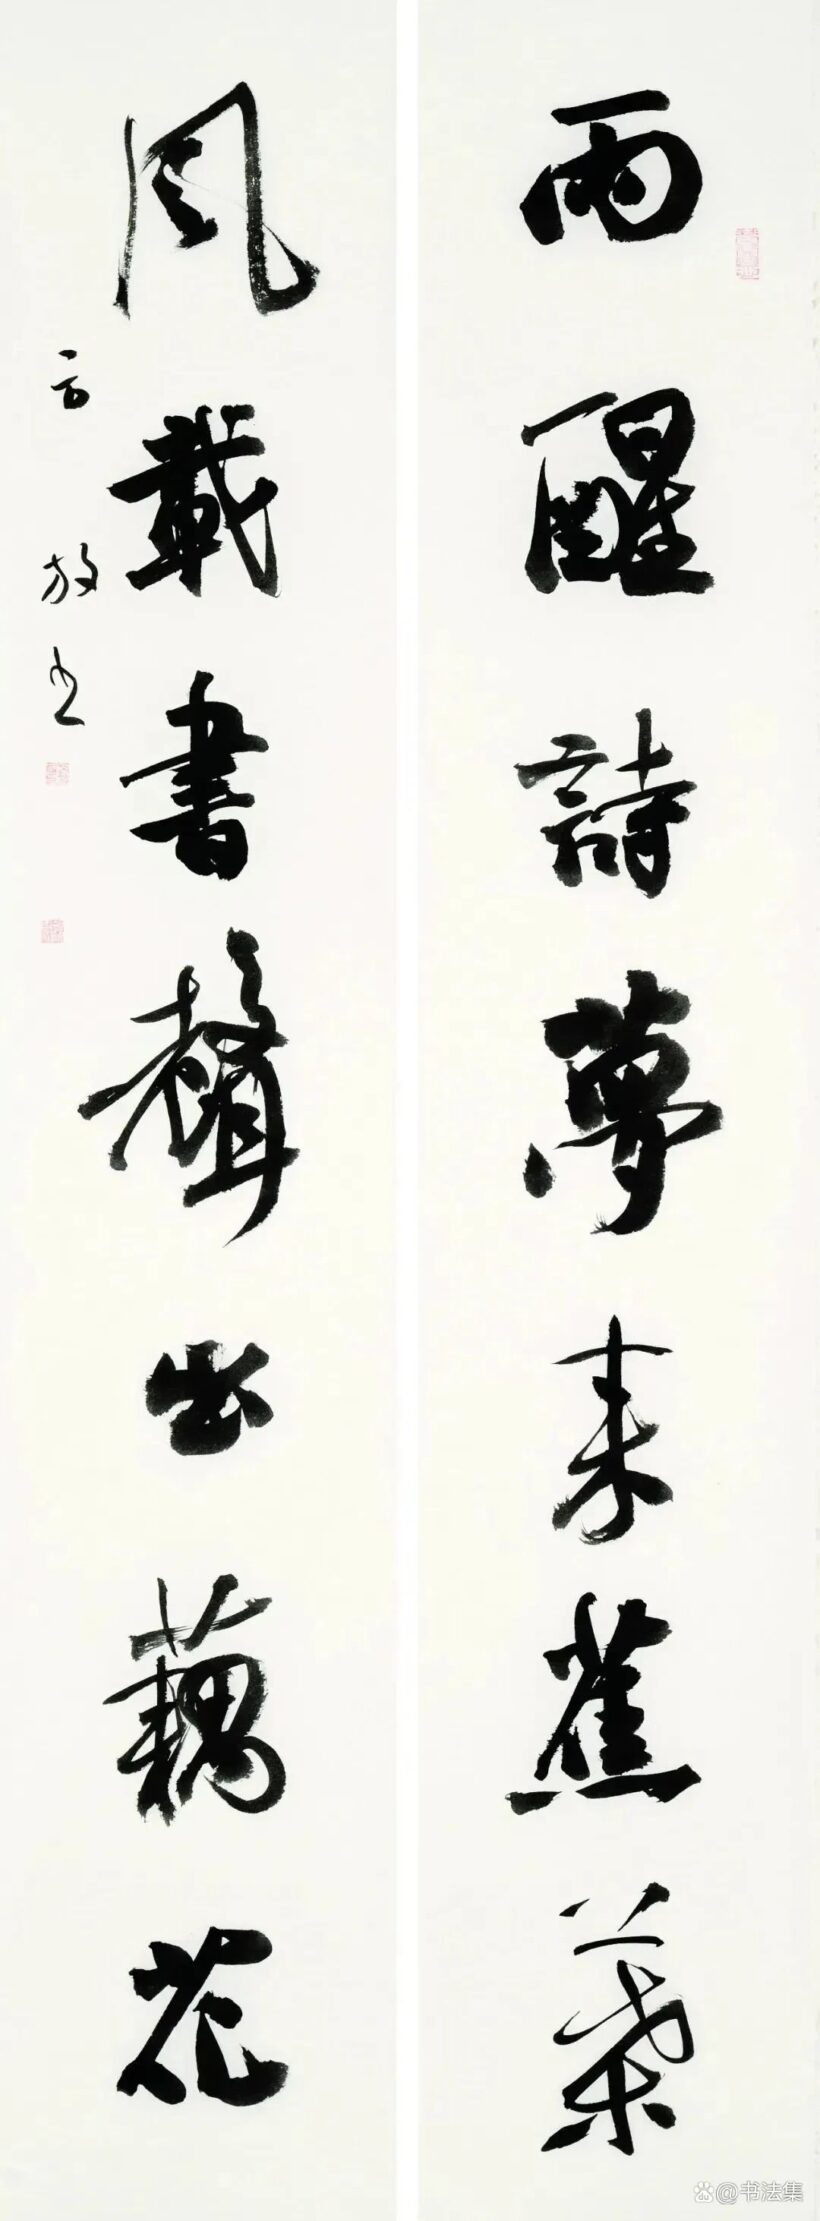 雨醒詩夢来蕉葉
風載書聲出藕花
言放书
@书法集